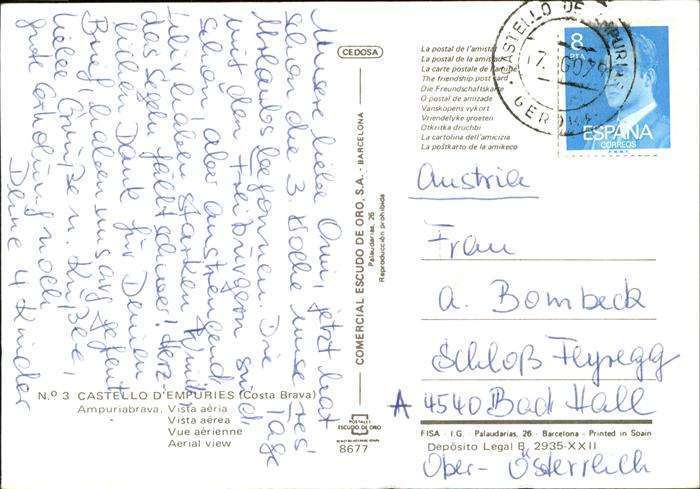 Meine liebe Omi, jetzt hat
schon die 3. Woche unseres
Urlaubs begonnen. Die Tage
mit den Freibürgern sind
schön, aber anstrengend
Wir haben starken Wind
das Segeln fällt schwer! Herz-
lichen Dank für Deinen
Brief, haben uns arg gefreut
Liebe Grüße u. Küße,
gute Erholung noch
Deine 4 Kinder
N.º 3 CASTELLO D'EMPURIES (Costa Brava)
Ampuriabrava. Vista aèria
Vista aérea
Vue aérienne
Aerial view
CEDOSA
COMERCIAL ESCUDO DE ORO, S.A. - BARCELONA
Palaudarias, 26
Reproducción prohibida
POSTALES
ESCUDO DE ORO
8677
La postal de l'amistat
La postal de la amistad
La carte postale de l'amitié
The friendship post card
Die Freundschaftskarte
O postal de amizade
Vanskopens vykort
Vriendelyke groeten
Otkritka druchbi
La cartolina dell'amicizia
La poŝtkarto de la amikeco
CASTELLO DE AMPURIAS
GERONA
8
PTA
ESPAÑA
CORREOS
Austria
Frau
A. Bombeck
Schloß Feyregg
A 4540 Bad Hall
FISA I.G. Palaudarias, 26 - Barcelona - Printed in Spain
Depósito Legal B. 2935-XXII
Ober-Österreich